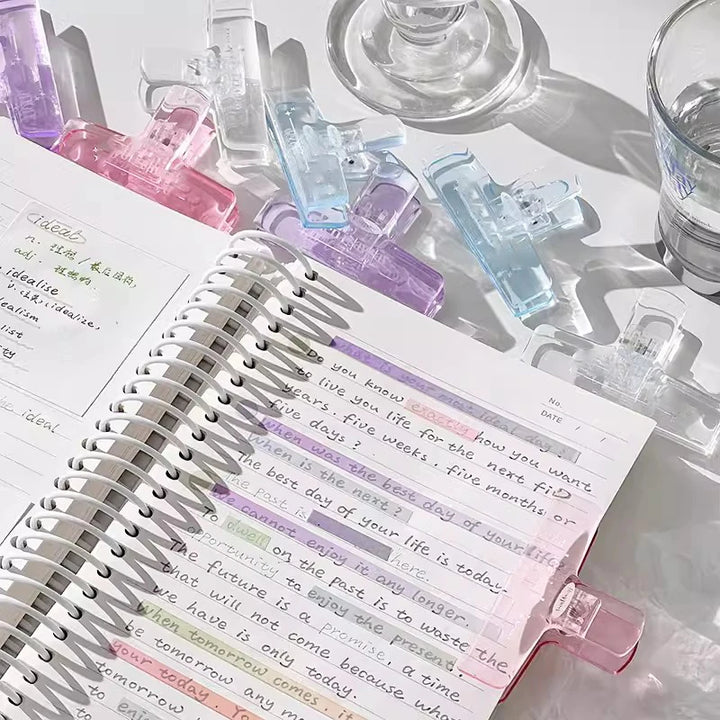 (ideal)
n. 理想 /
adj. 理想的
idealise
v. 理想化, idealize,
idealism
list
ity
ideal
No.
DATE / /
what is your most ideal day?
Do you know exactly how you want
to live you life for the next
years. five weeks. five months or
five days?
when was the best day of your life?
when is the next?
The best day of your life is today.
The past is here.
We cannot enjoy it any longer.
To dwell on the past is to waste the
opportunity to enjoy the present.
The future is a promise, a time
that will not come because what
we have is only today.
when tomorrow comes, it
be tomorrow any more
your today. Yo
tomorrow w
to enjoy
to